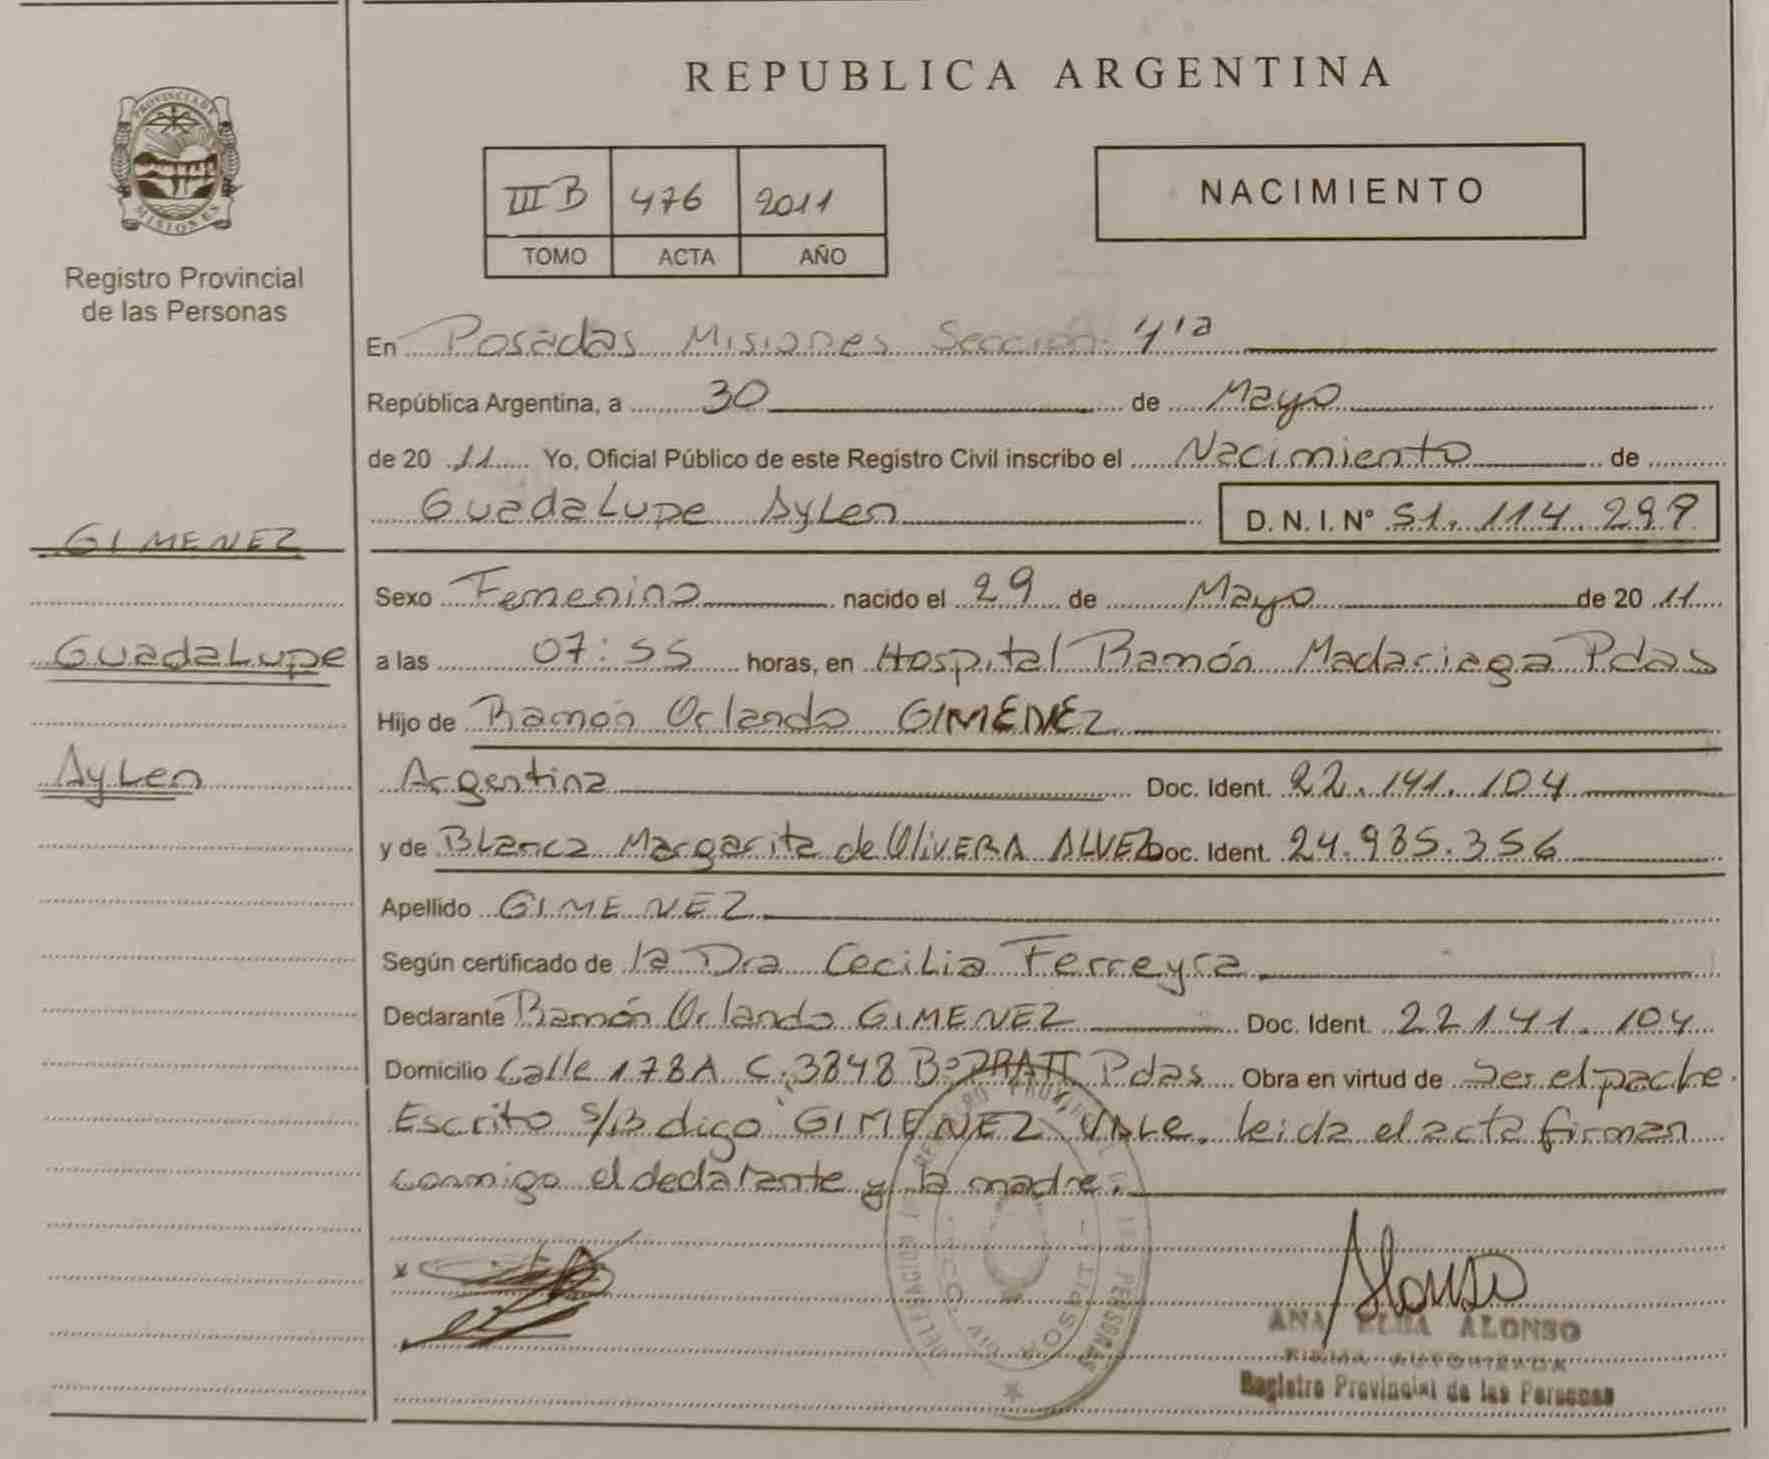 PROVINCIA DE
MISIONES
Registro Provincial
de las Personas
GIMENEZ
Guadalupe
Aylen
REPUBLICA ARGENTINA
III B 476 2011
TOMO ACTA AÑO
NACIMIENTO
En Posadas Misiones Sección 4ta
República Argentina, a 30 de Mayo
de 2011 Yo, Oficial Público de este Registro Civil inscribo el Nacimiento de
Guadalupe Aylen D. N. I. N° 51.114.299
Sexo Femenino nacido el 29 de Mayo de 2011
a las 07:55 horas, en Hospital Ramón Madariaga Pdas
Hijo de Ramón Orlando GIMENEZ
Argentina Doc. Ident. 22.141.104
y de Blanca Margarita de OliVERA ALVEZ Doc. Ident. 24.985.356
Apellido GIMENEZ
Según certificado de la Dra Cecilia Ferreyra
Declarante Ramón Orlando GIMENEZ Doc. Ident. 22141.104
Domicilio Calle 178A C. 3848 Bo Pdas Obra en virtud de Ser el padre.
Escrito s/B digo GIMENEZ VALE. leida el acta firman
conmigo el declarante y la madre.
Alonso
ANA ELBA ALONSO
FIRMA AUTORIZADA
Registro Provincial de las Personas